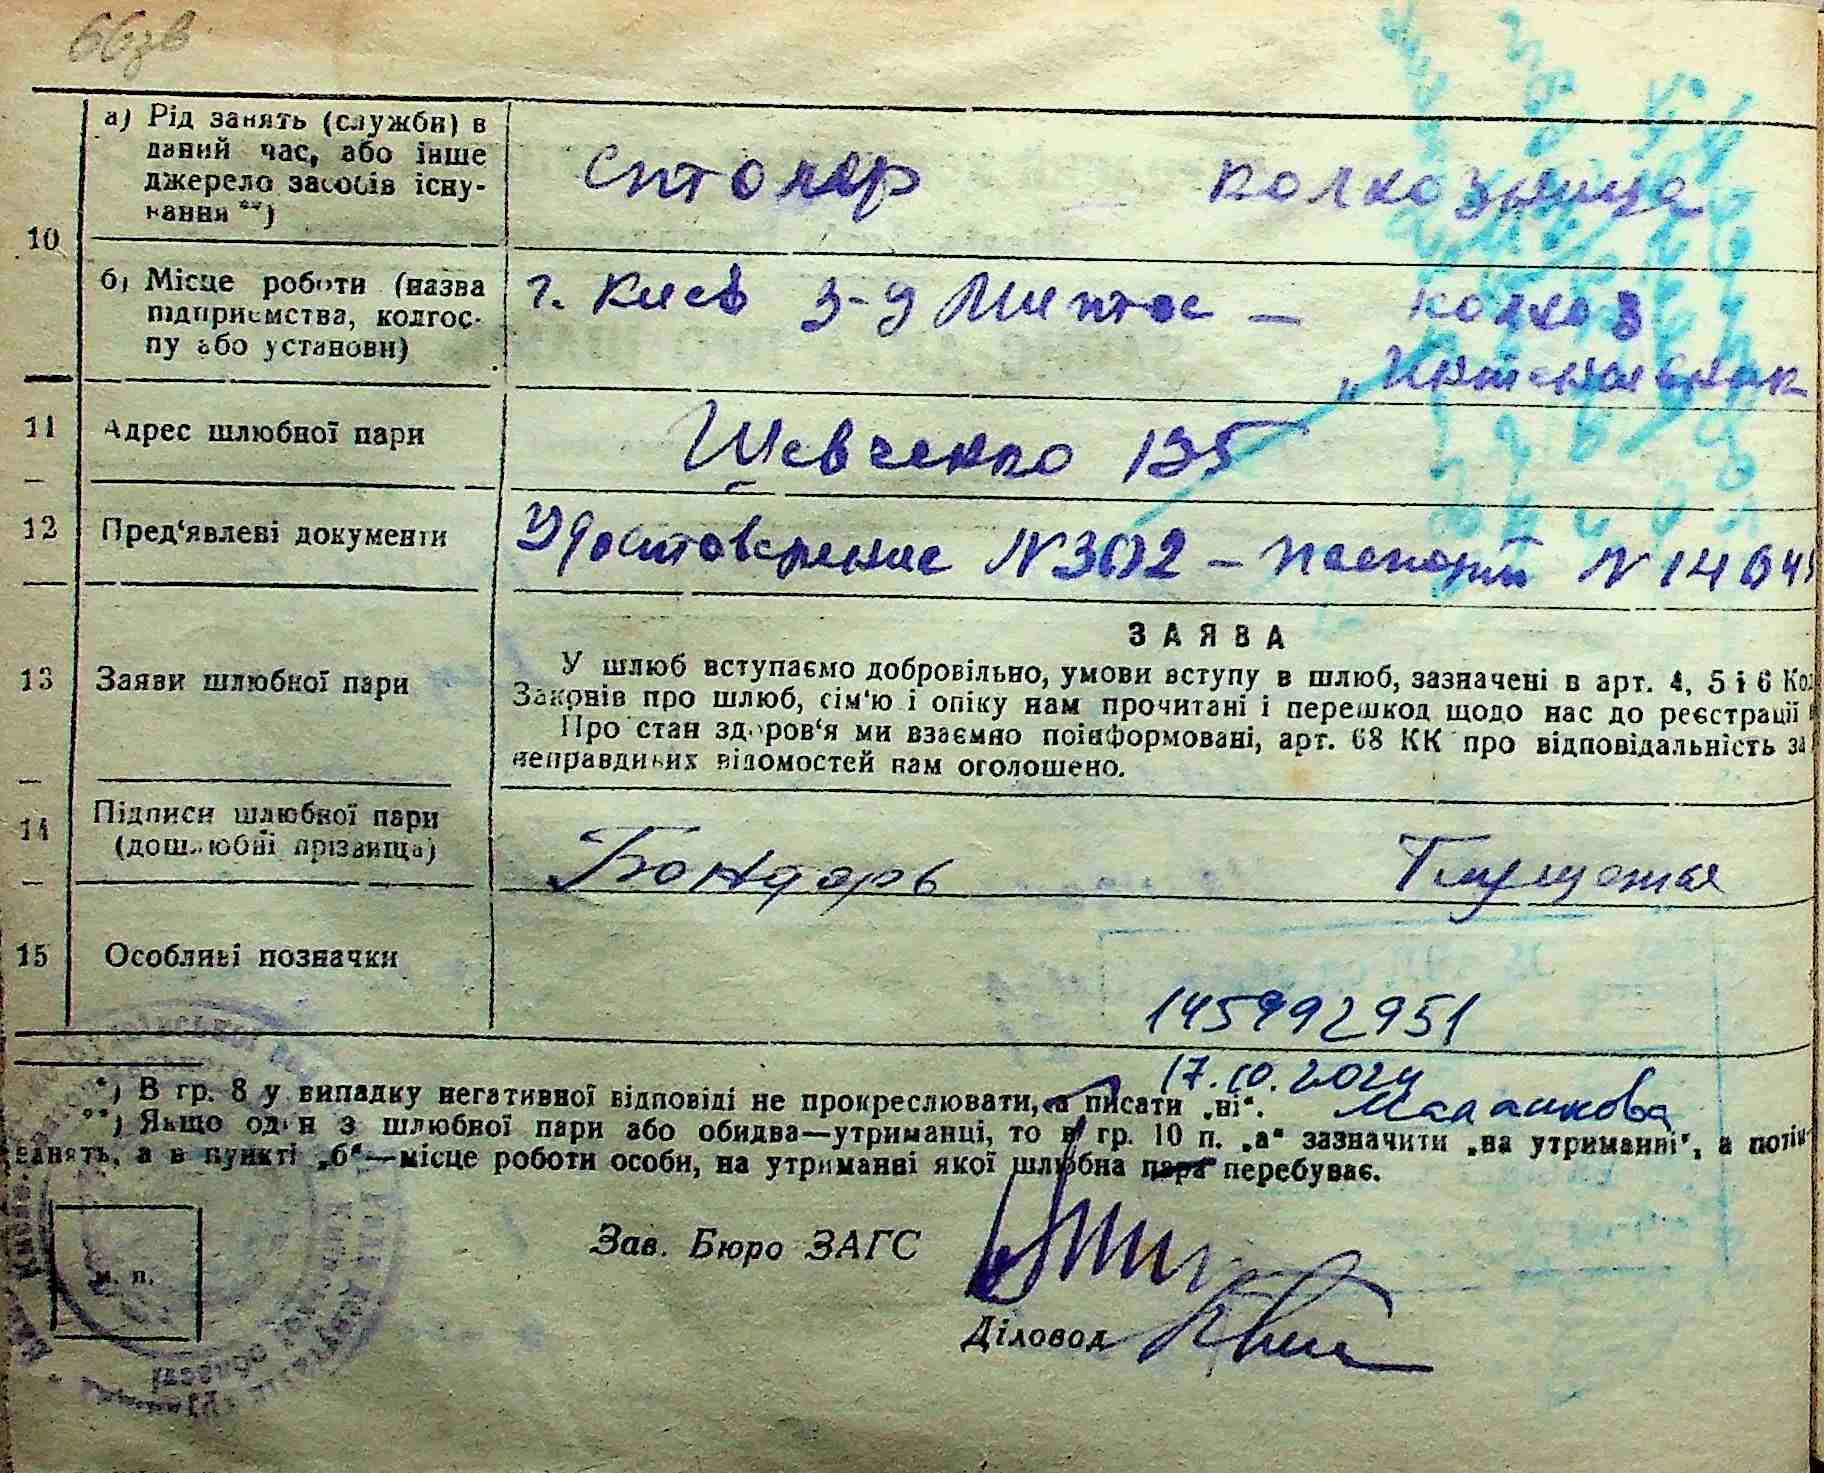 66зв
10
а) Рід занять (служби) в
даний час, або інше
джерело засобів існу-
вання **)
столяр колхозница
б) Місце роботи (назва
підприємства, колгос-
пу або установи)
г. Киев з-д — колхоз
11 Адрес шлюбної пари Шевченко 135
12 Пред‘явлені документи Удостоверение N 302 — паспорт N
13 Заяви шлюбної пари
ЗАЯВА
У шлюб вступаємо добровільно, умови вступу в шлюб, зазначені в арт. 4, 5 і 6
Законів про шлюб, сім‘ю і опіку нам прочитані і перешкод щодо нас до реєстрації
Про стан здоров‘я ми взаємно поінформовані, арт. 68 КК про відповідальність за
неправдивих відомостей нам оголошено.
14 Підписи шлюбної пари
(дошлюбні прізвища)
Бондарь
15 Особливі позначки
145992951
17.10.2024
Маланкова
*) В гр. 8 у випадку негативної відповіді не прокреслювати, а писати „ні“.
**) Якщо один з шлюбної пари або обидва—утриманці, то в гр. 10 п. „а“ зазначити „на утриманні“, а
занять, а в пункті „б“—місце роботи особи, на утриманні якої шлюбна пара перебуває.
м. п.
Зав. Бюро ЗАГС
Діловод